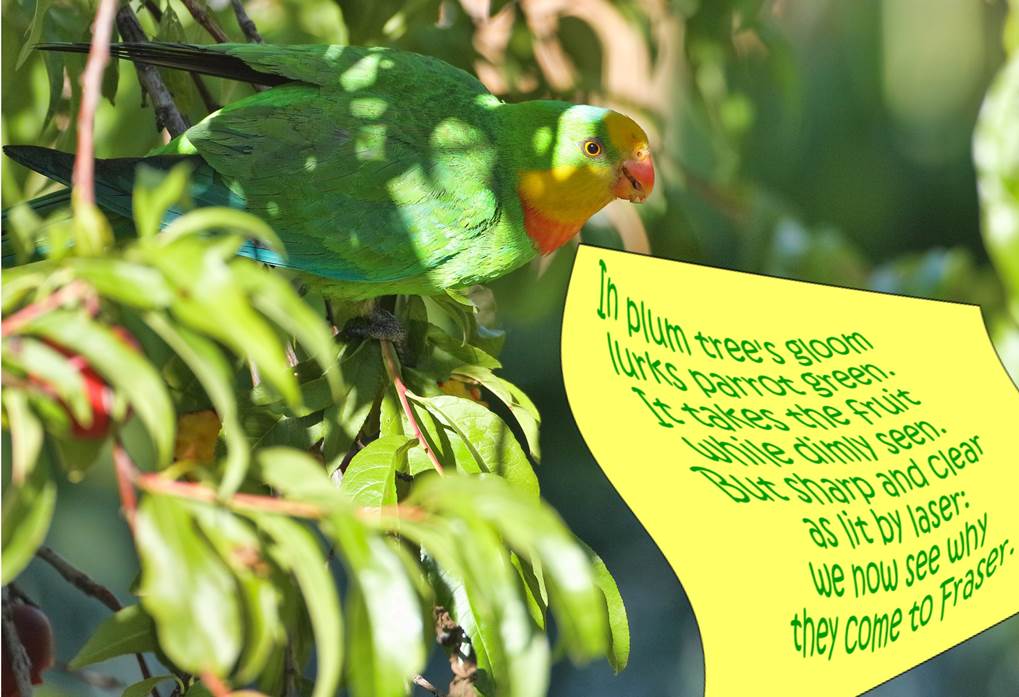 In plum tree's gloom
lurks parrot green.
It takes the fruit
while dimly seen.
But sharp and clear
as lit by laser:
we now see why
they come to Fraser.